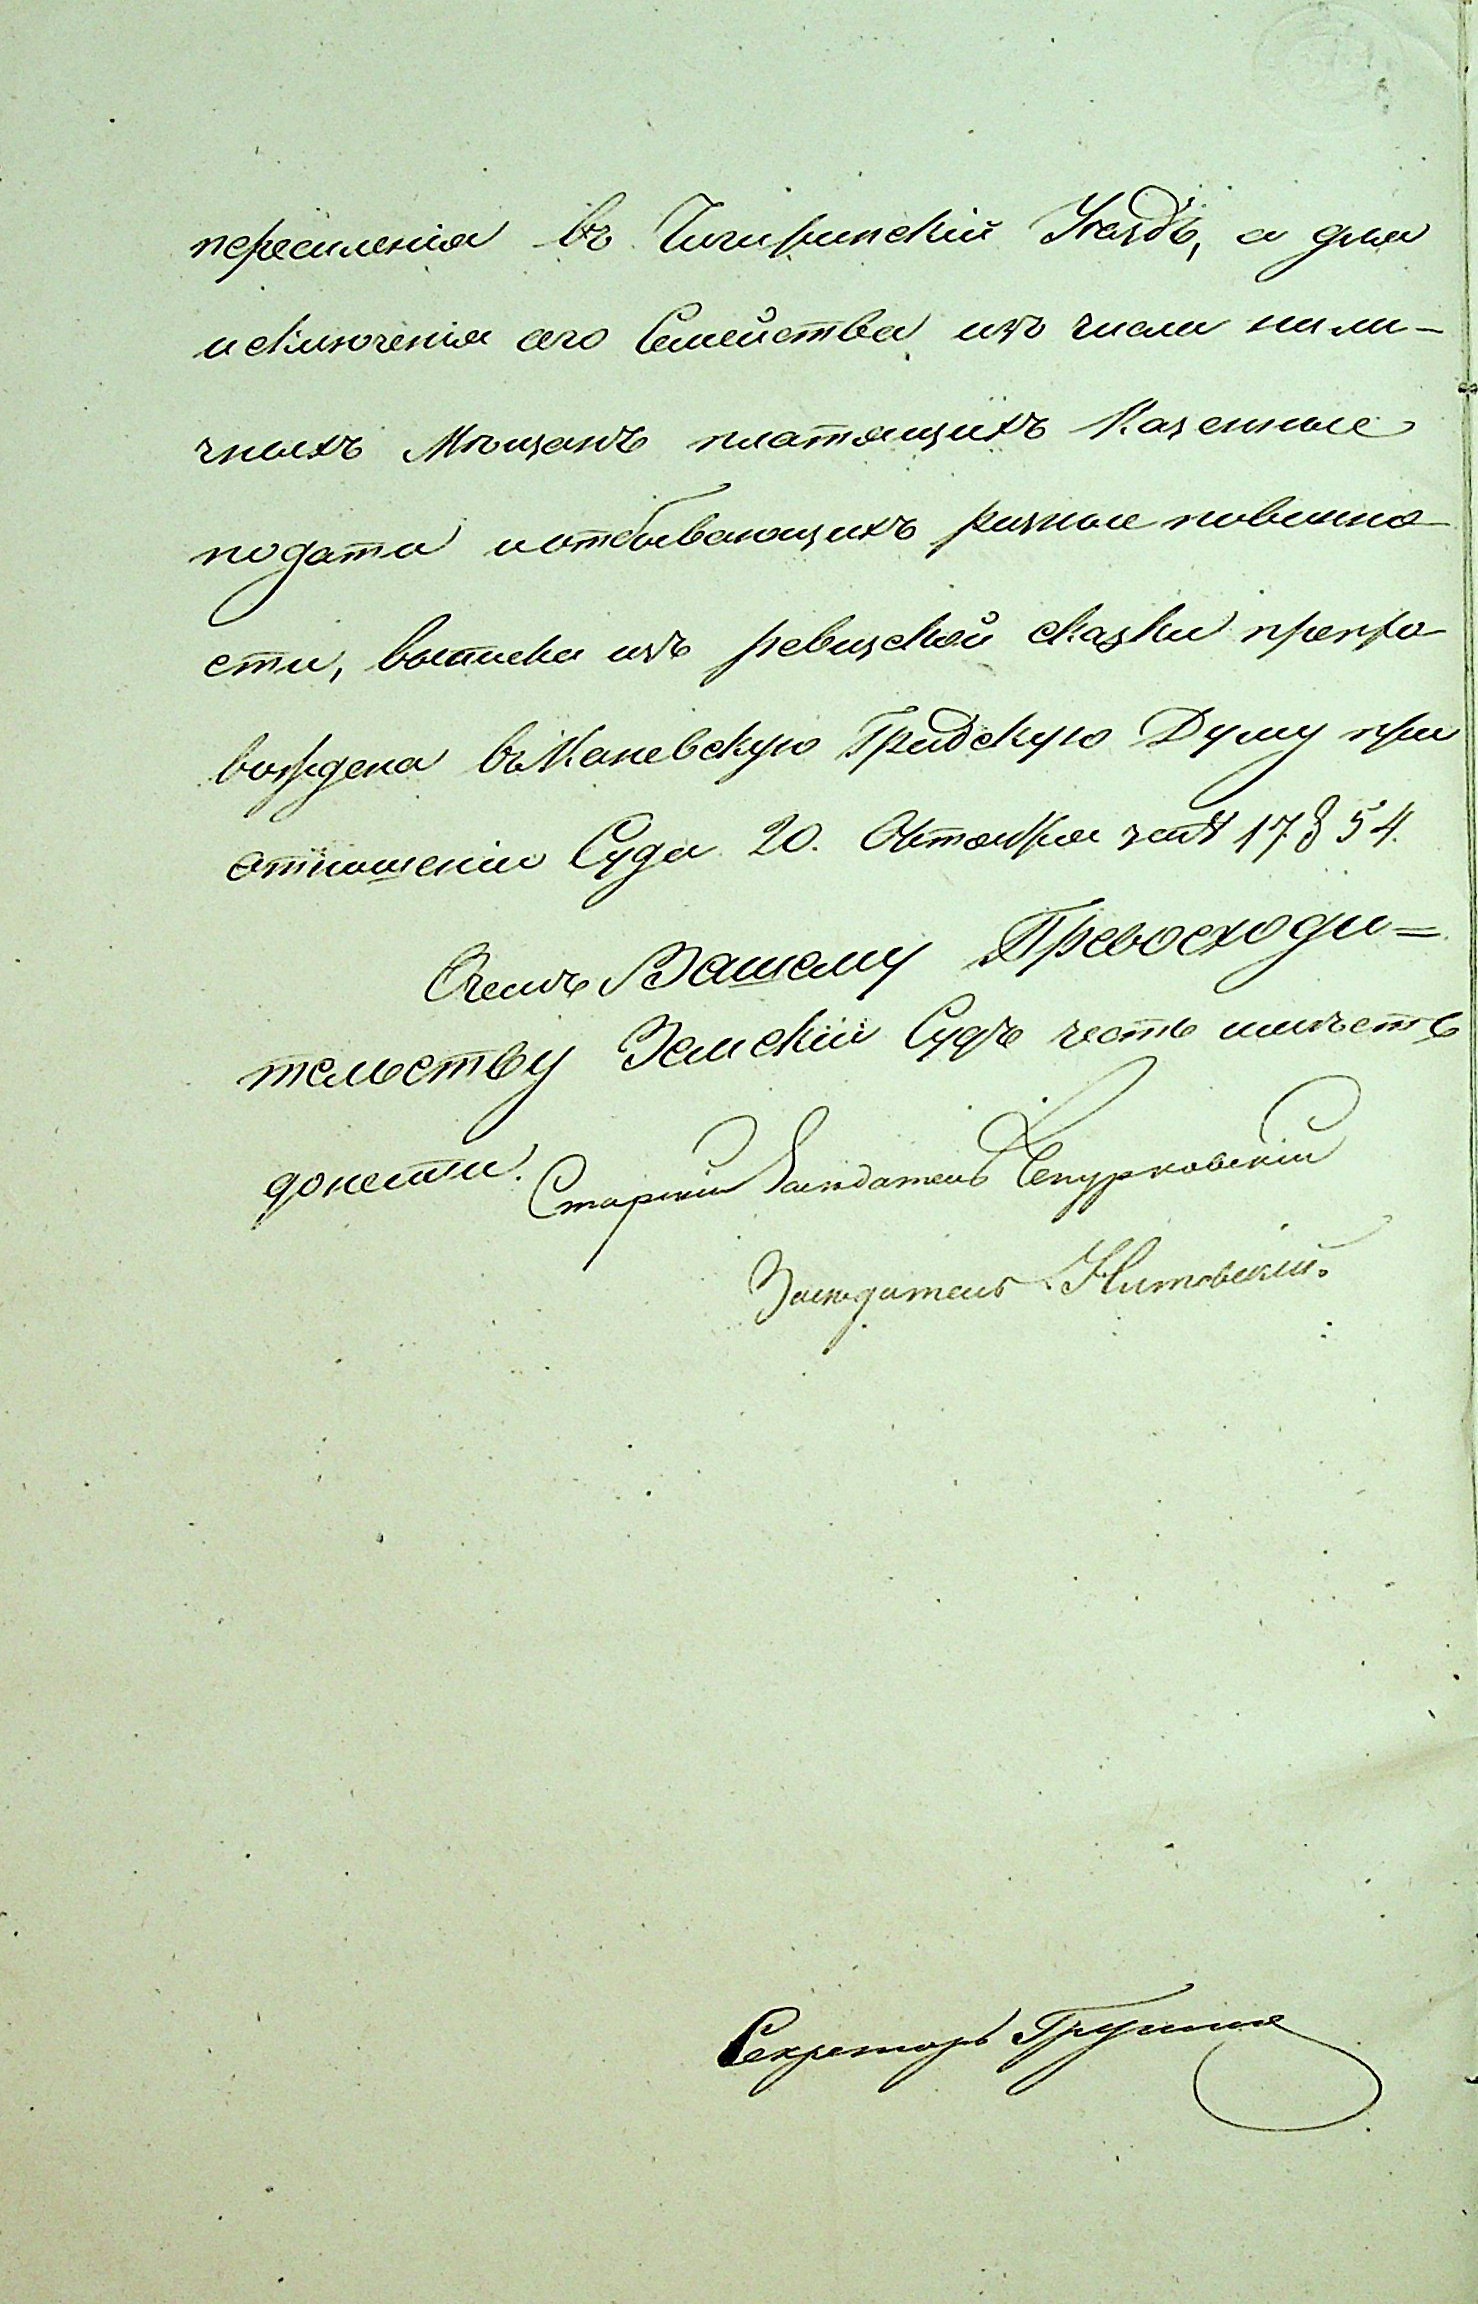 переселенія въ Чигиринскій Уѣздъ, а для
исключенія его Семейства изъ числа нали-
чныхъ Мѣщанъ платящихъ Казенные
подати и отбывающихъ разные повинно-
сти, выписка изъ ревизской сказки препро-
вождена въ Каневскую Градскую Думу при
отношеніи Суда 20. Октября за № 17854.
О чемъ Вашему Превосходи=
тельству Земскій Судъ честь имѣетъ
донести. Старшій Засѣдатель
Засѣдатель
Секретарь